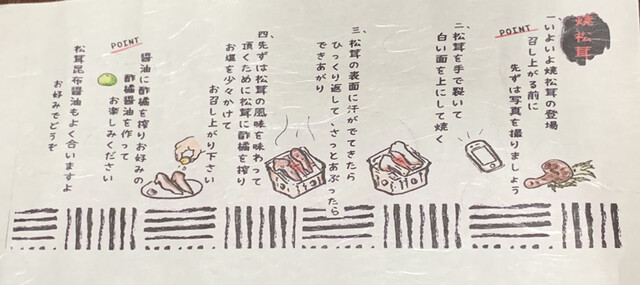 焼松茸
一、いよいよ焼松茸の登場
召し上がる前に
先ずは写真を撮りましょう
POINT
二、松茸を手で裂いて
白い面を上にして焼く
三、松茸の表面に汗がでてきたら
ひっくり返して、さっとあぶったら
できあがり
四、先ずは松茸の風味を味わって
頂くために松茸に酢橘を搾り
お塩を少々かけて
お召し上がり下さい
POINT
醤油に酢橘を搾りお好みの
酢橘醤油を作って
お楽しみください
松茸昆布醤油もよく合いますよ
お好みでどうぞ